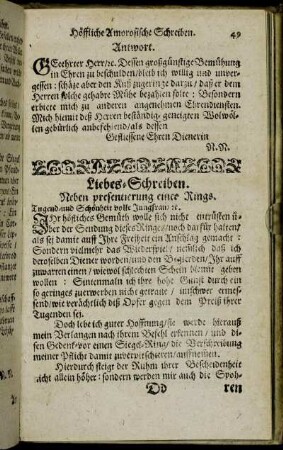 Höffliche Amorosische Schreiben. 49
Antwort.
GEehrter Herr/ꝛc. Dessen großgünstige Bemühung
in Ehren zu beschulden/bleib ich willig und unver-
gessen: schäze aber den Kuß zu geringe darzu/ daß er dem
Herren solche gehabte Mühe bezahlen solte: Besondern
erbiete mich zu anderen angenehmen Ehrendiensten.
Mich hiemit deß Herren beständig-geneigten Wolwöl-
len gebürlich anbefehlend/als dessen
Geflissene Ehren Dienerin
N.N.
Liebes-Schreiben.
Neben presentierung eines Rings.
Tugend und Schönheit volle Jungfrau/ꝛc.
IHr höfliches Gemüth wolle sich nicht entrüsten ü-
ber der Sendung dieses Ringes/noch darfür halten/
als sei damit auff Ihre Freiheit ein Anschlag gemacht:
Sondern vielmehr das Widerspiel; nemlich daß ich
derselben Diener worden/und den Begierden/Ihr auff
zuwarten einen/wiewol schlechten Schein hiemit geben
wollen: Sintemahln ich ihre hohe Gunst durch ein
so geringes zuerwerben nicht getraute/ unschwer ermes-
send/wie verächtlich diß Opfer gegen dem Preiß ihrer
Tugenden sei.
Doch lebe ich guter Hoffnung/sie werde hierauß
mein Verlangen nach ihrem Befehl erkennen / und di-
sen Gedenk-vor einen Siegel-Ring/die Verschreibung
meiner Pflicht damit zuverpitschieren/auffnemen.
Hierdurch steigt der Ruhm ihrer Bescheidenheit
nicht allein höher: sondern werden mir auch die Spoh-
Dd ren